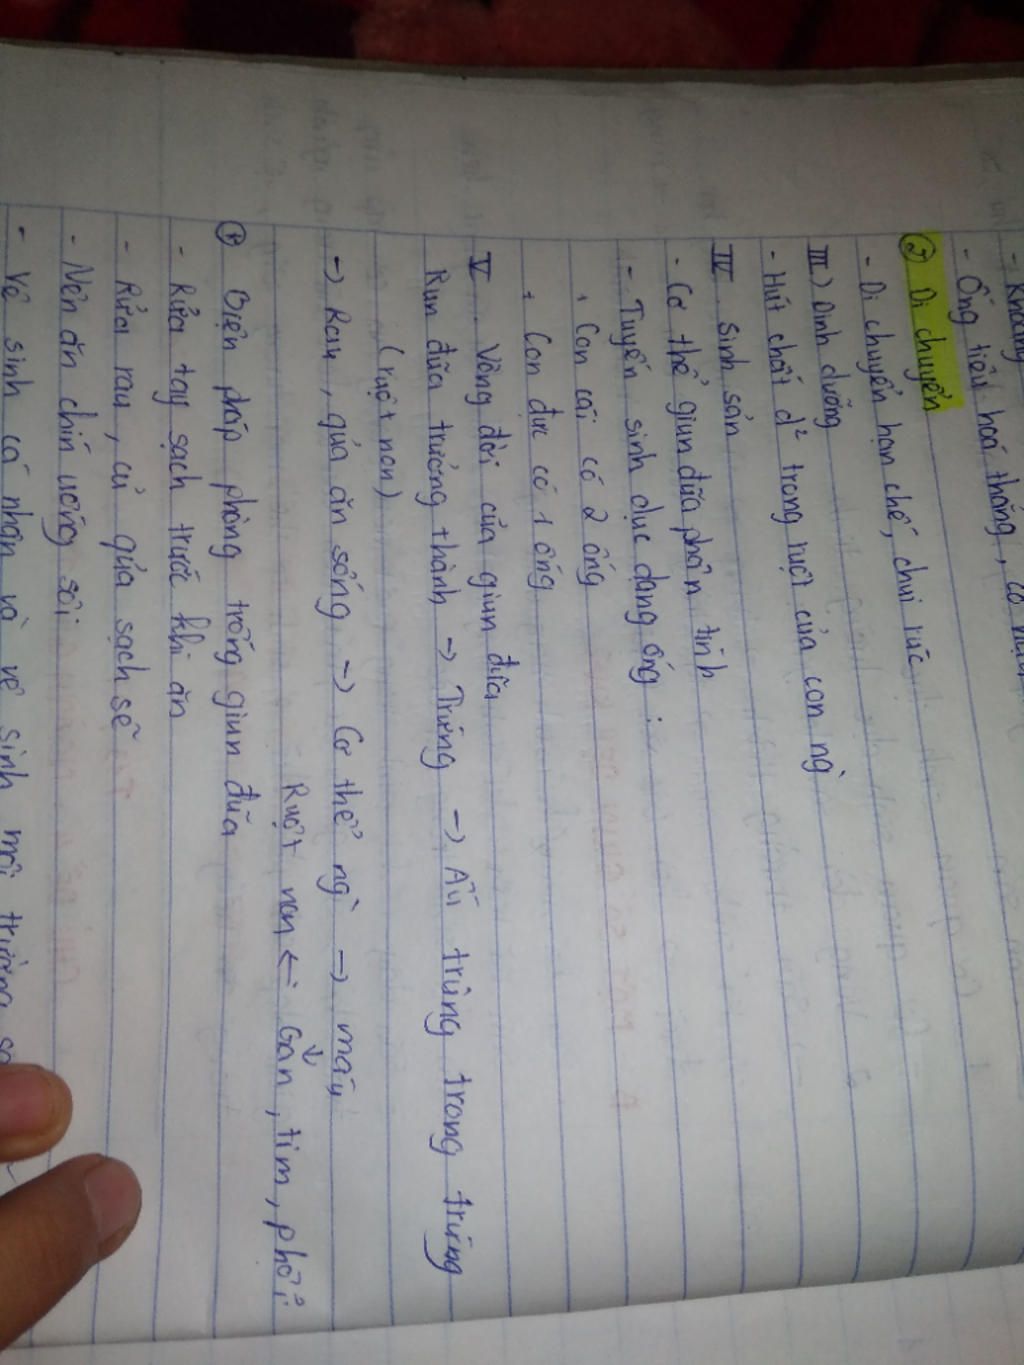 - Khoang
- Ống tiêu hoá thẳng, có
② Di chuyển
- Di chuyển hạn chế, chui rúc
III) Dinh dưỡng
- Hút chất d² trong ruột của con ng`
IV sinh sản
- Cơ thể giun đũa phân tính
- Tuyến sinh dục dạng ống :
+ Con cái có 2 ống
+ Con đực có 1 ống
V Vòng đời của giun đũa
Run đũa trưởng thành → Trứng → Ấu trùng trong trứng
(ruột non)
→ Rau, qủa ăn sống → Cơ thể ng` → máu
↓
Ruột non ← Gan, tim, phổi
① Biện pháp phòng trống giun đũa
- Rửa tay sạch trước khi ăn
- Rửa rau, củ qủa sạch sẽ
- Nên ăn chín uống sôi
- Vệ sinh cá nhân và vệ sinh môi trường